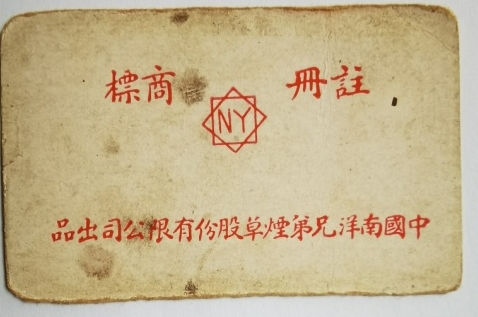 註冊 商標
NY
中國南洋兄弟煙草股份有限公司出品